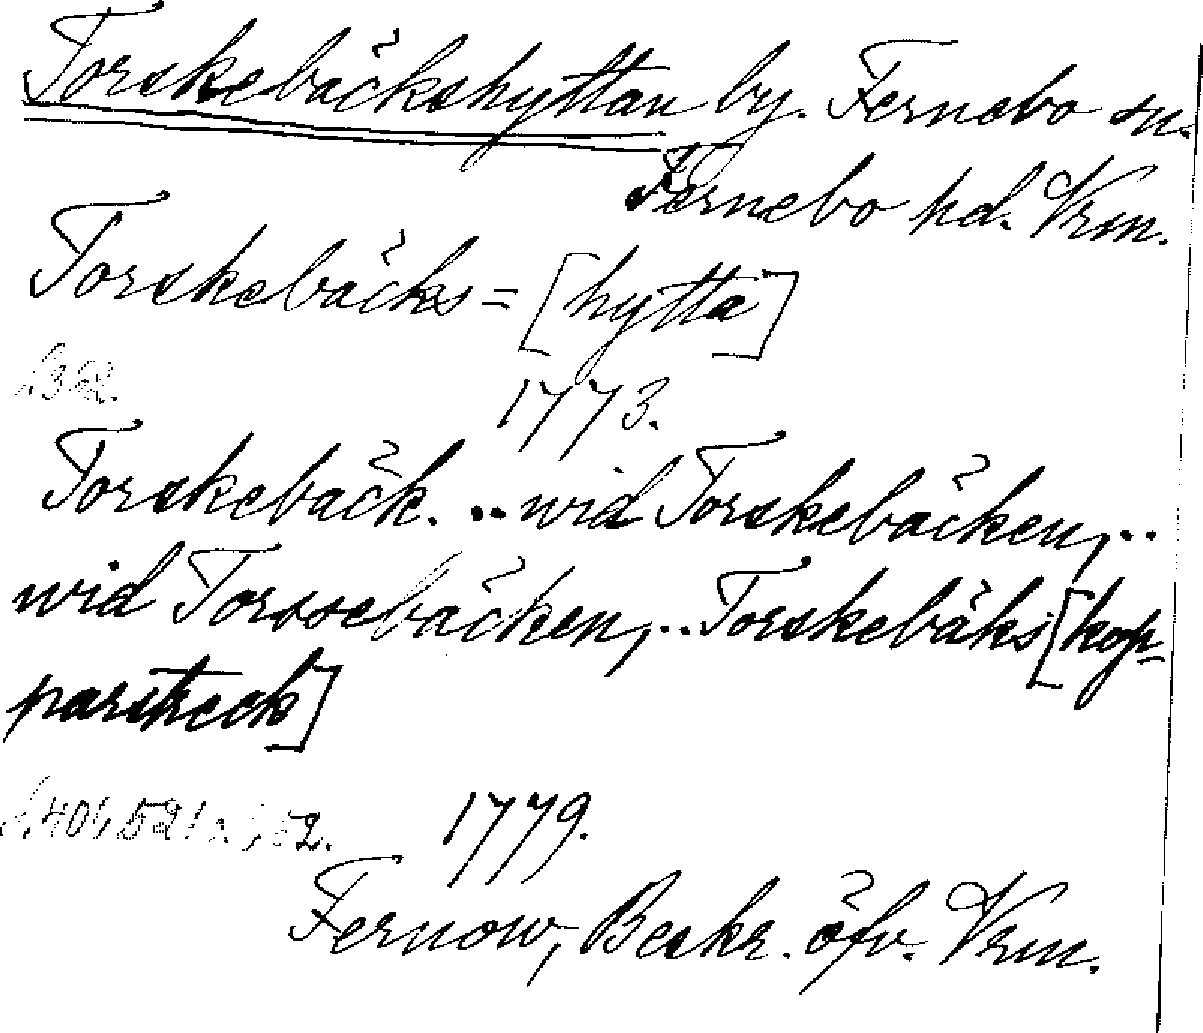 Torskebäckshyttan by. Fernebo sn.
Fernebo hd. Vrm.
Torskebäcks= [hytta]
1773.
Torskebäck. .. wid Torskebäcken, ..
wid Torssebäcken, .. Torskebäks [kop-
parstreck]
1779.
Fernow, Beskr. öfv. Vrm.